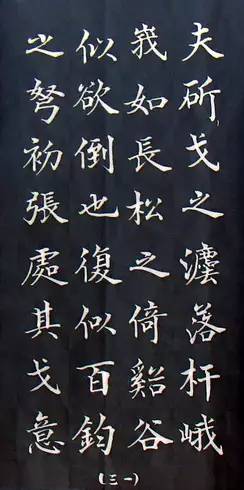 夫斫戈之灋落杆峨
峩如長松之倚谿谷
似欲倒也復似百鈞
之弩初張處其戈意
(一三)